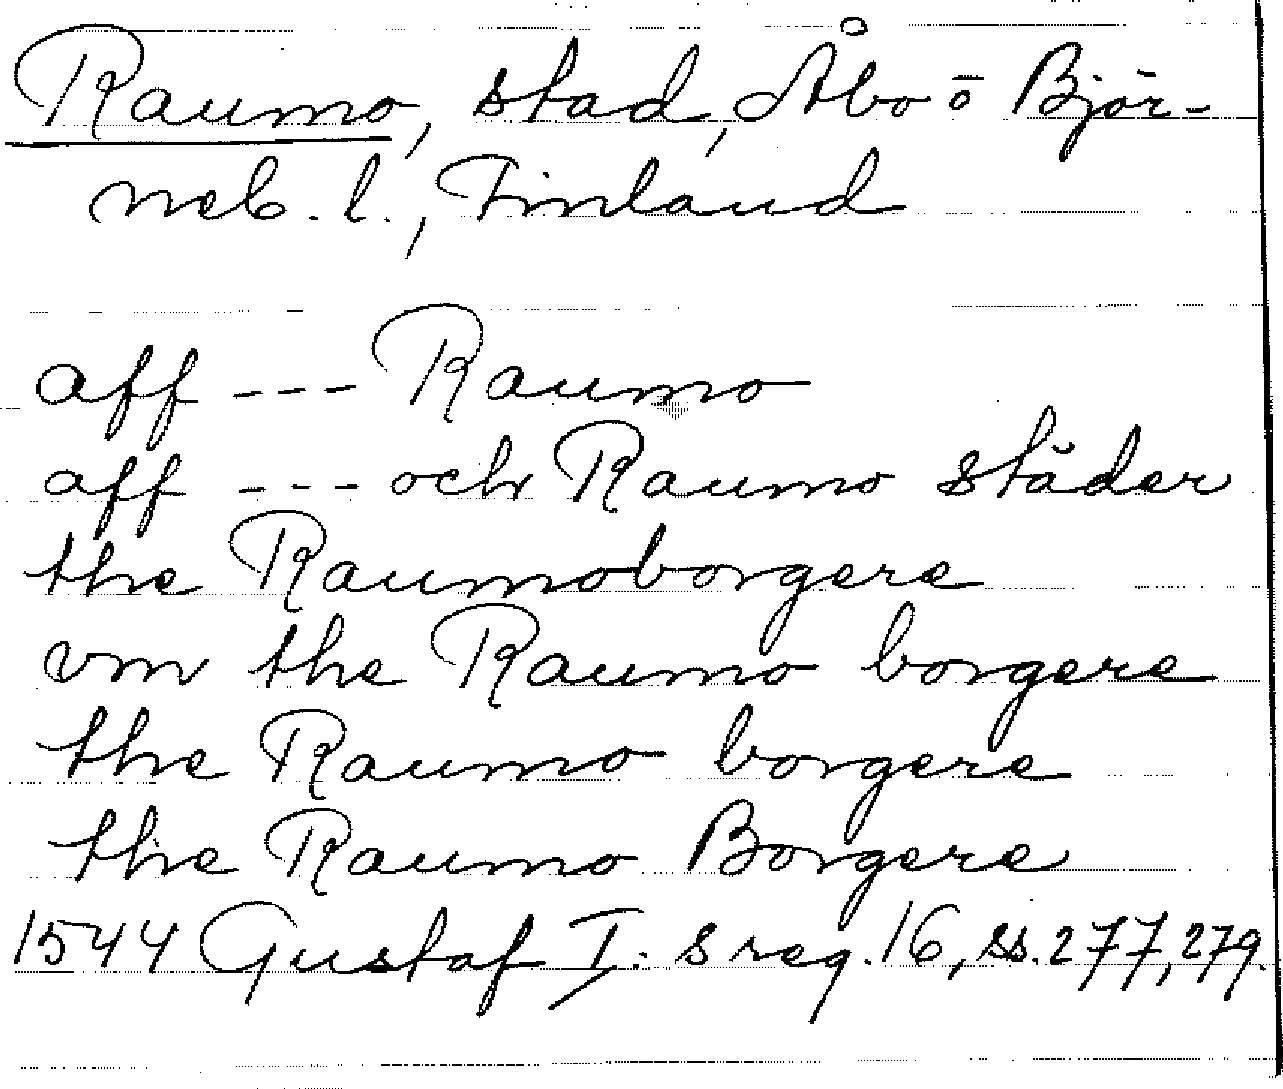 Raumo, stad, Åbo ō Björ-
neb. l., Finland
aff --- Raumo
aff --- och Raumo städer
the Raumoborgere
vm the Raumo borgere
the Raumo borgere
the Raumo Borgere
1544 Gustaf I:s reg. 16, ss. 277, 279.